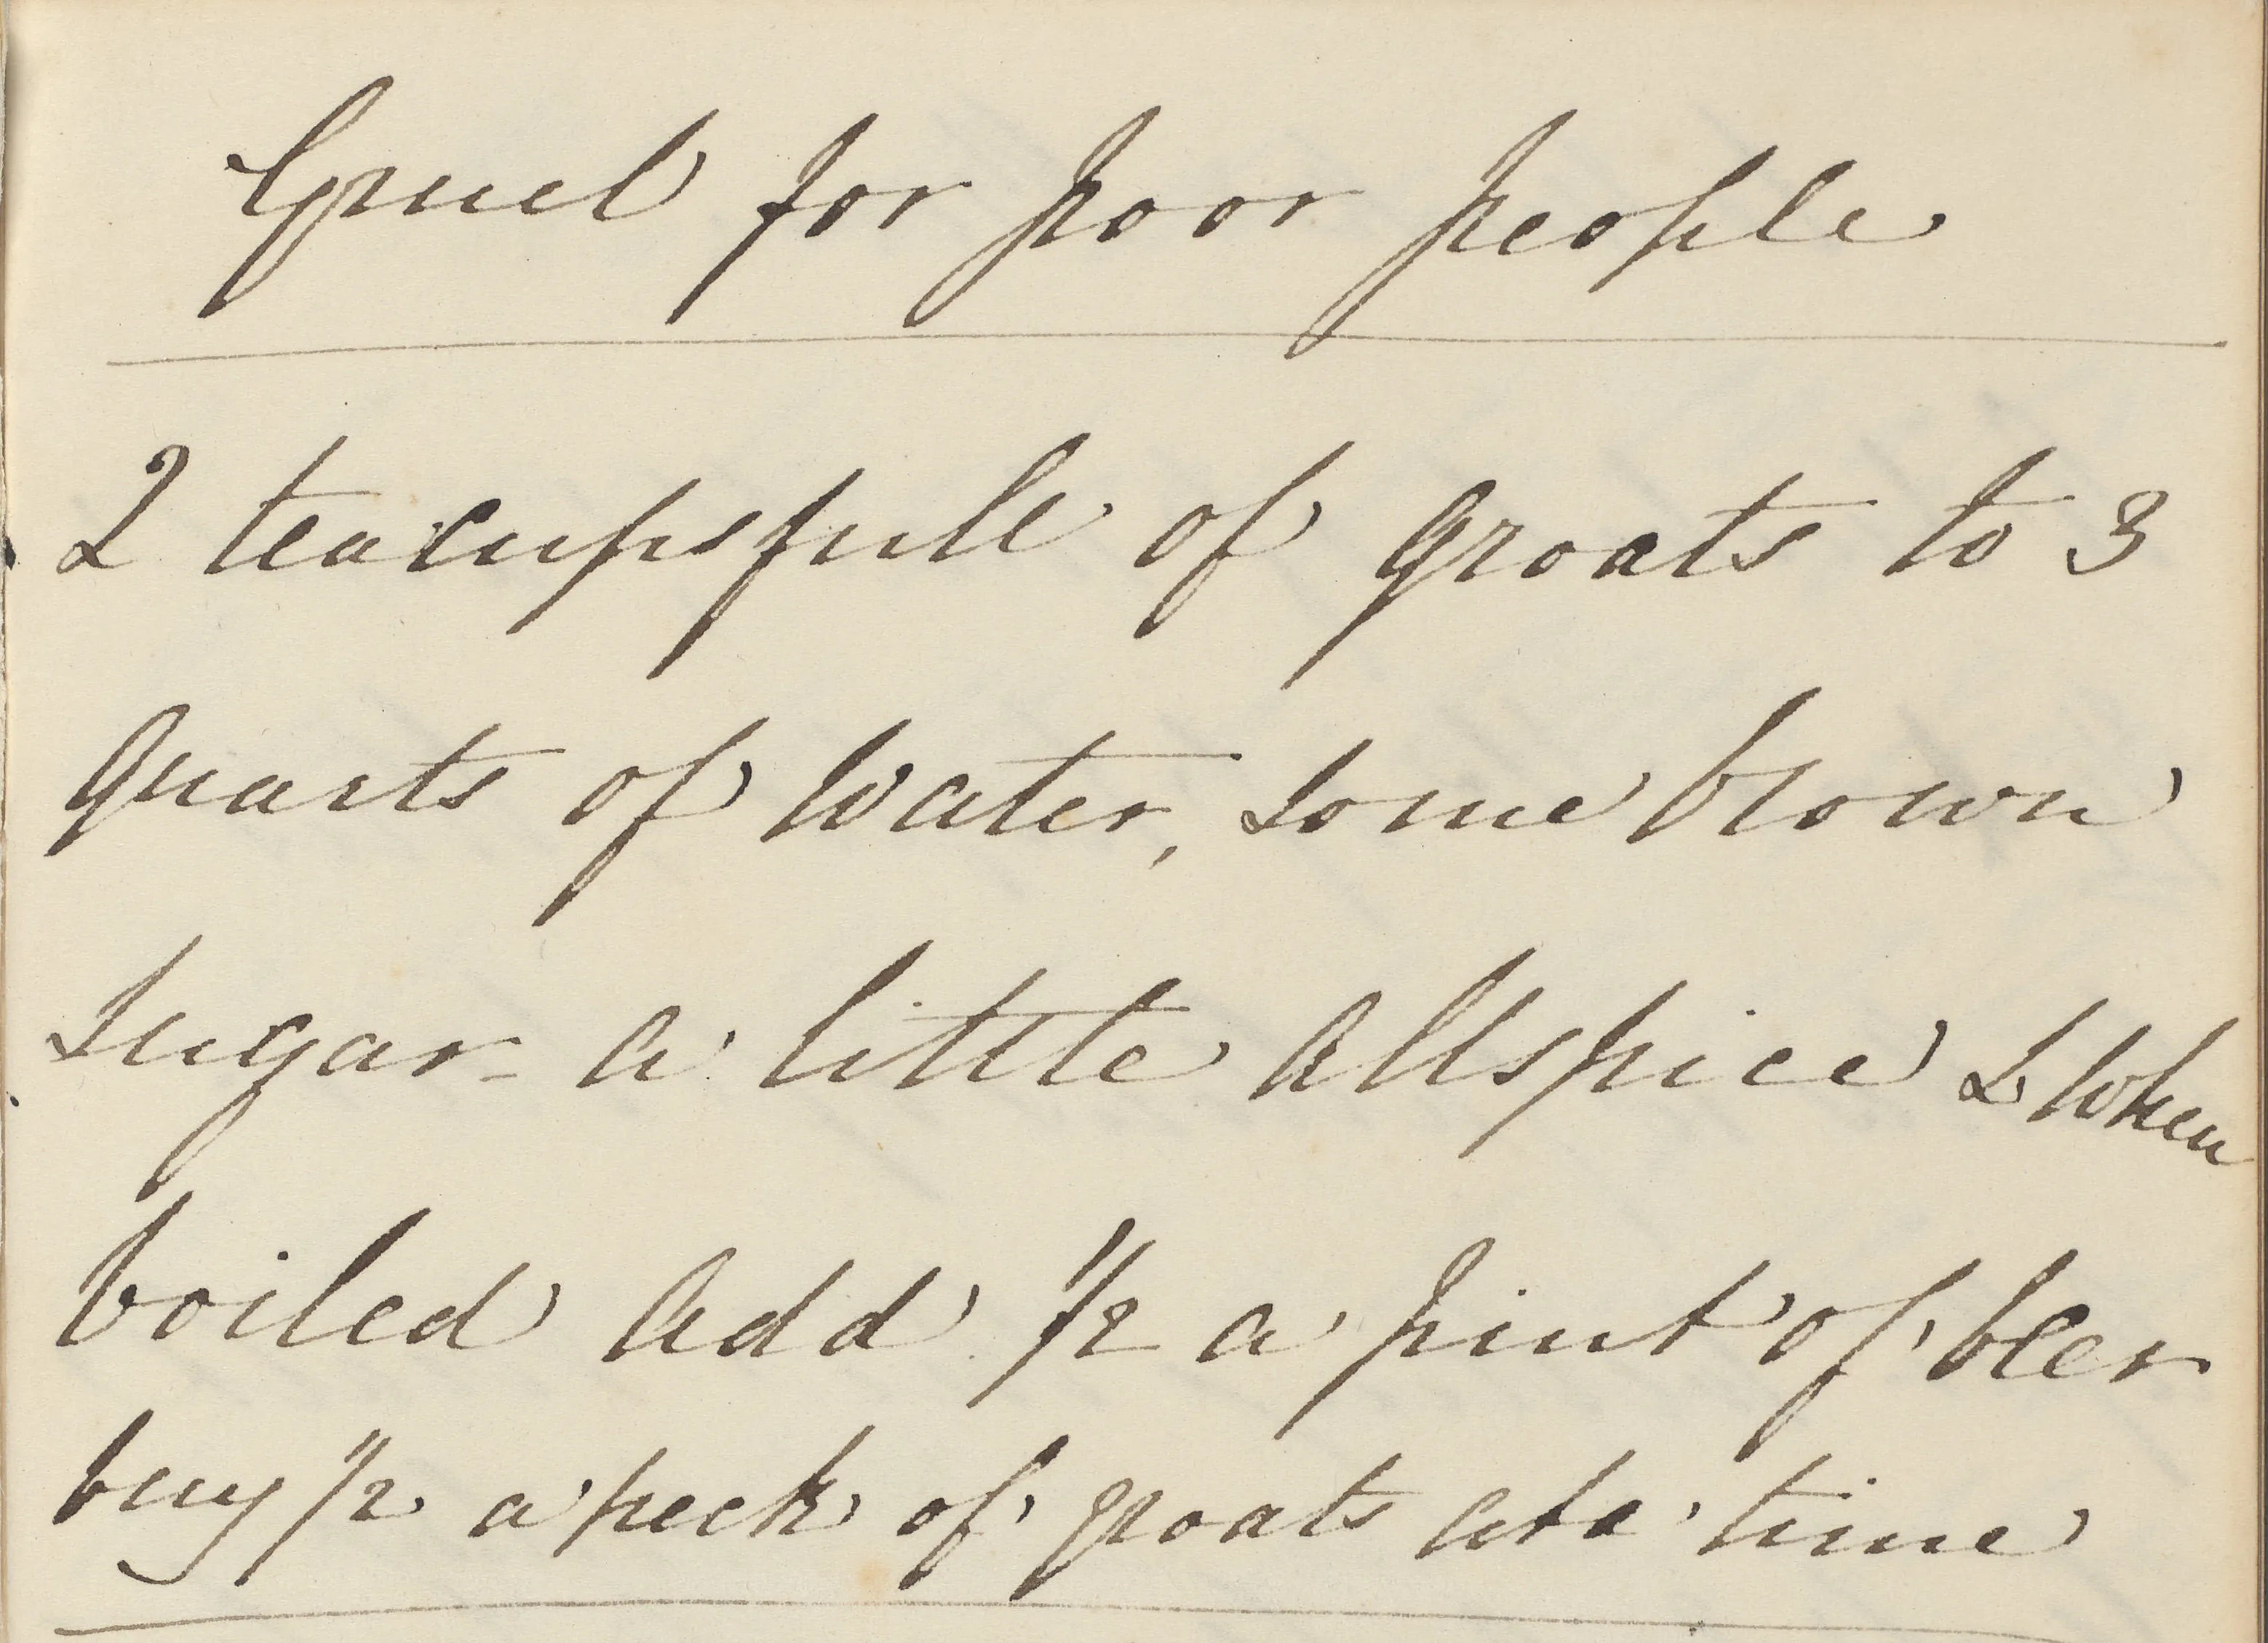 Gruel for poor people
2 teacupsfull of groats to 3
quarts of water, some brown
sugar - a little Allspice & when
boiled add 1/2 a pint of beer
buy 1/2 a peck of groats at a time